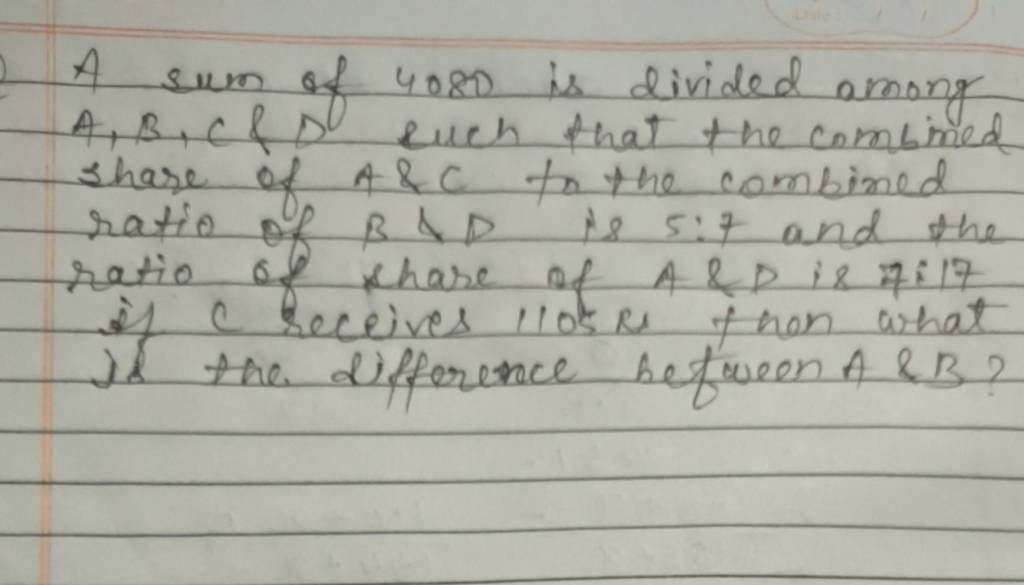 A sum of 4080 is divided among
A, B, C & D such that the combined
share of A & C to the combined
ratio of B & D is 5:7 and the
ratio of share of A & D is 7:17
if C receives 1105 Rs then what
is the difference between A & B?